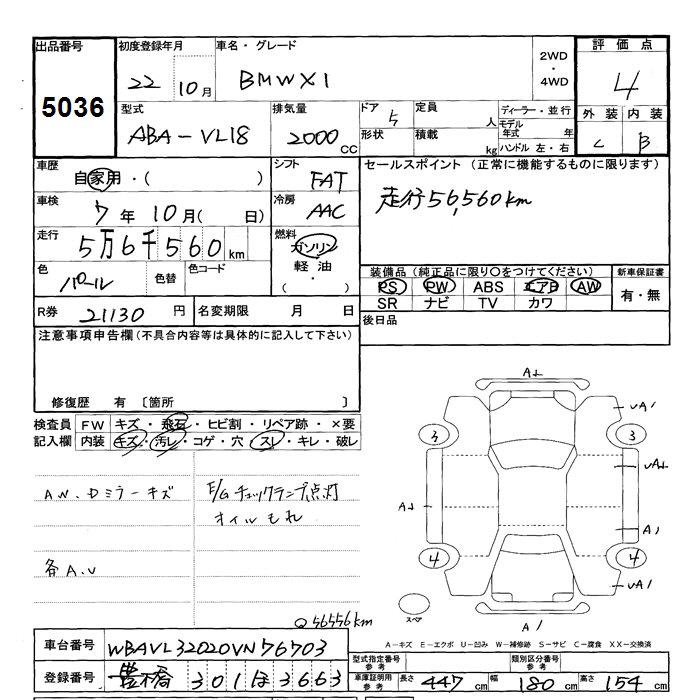 出品番号 初度登録年月 車名・グレード 2WD・4WD 評価点
5036 22 10月 BMW X1 4
型式 排気量 ドア 5 定員 人 ディーラー・並行 外装 内装
ABA-VL18 2000 CC 形状 積載 kg モデル年式 年 C B
ハンドル 左・右
車歴 シフト セールスポイント (正常に機能するものに限ります)
自家用・( ) FAT 走行56,560km
車検 冷房
7年10月( 日) AAC
走行 燃料
5万6千560km ガソリン
色 色替 色コード 軽油 装備品 (純正品に限り○をつけてください) 新車保証書
パール ・( ) PS PW ABS エアB AW 有・無
SR ナビ TV カワ
R券 21130 円 名変期限 月 日 後日品
注意事項申告欄(不具合内容等は具体的に記入して下さい)
修復歴 有 〔箇所 〕
検査員 FW キズ・飛石・ヒビ割・リペア跡・×要
記入欄 内装 キズ・汚レ・コゲ・穴・スレ・キレ・破レ
AW.Dミラーキズ E/Gチェックランプ点灯
オイルもれ
各A.U
Q 56556km
A⊥
UA1
3 3
UA⊥
A⊥
A1
4 4
UA1
スペア
A1
A-キズ E-エクボ U-凹み W-補修跡 S-サビ C-腐食 XX-交換済
車台番号 WBAVL32020VN76703 型式指定番号 参考 類別区分番号 参考
登録番号 豊橋 301 ほ 3663 車庫証明用 参考 長さ 447 cm 幅 180 cm 高さ 154 cm